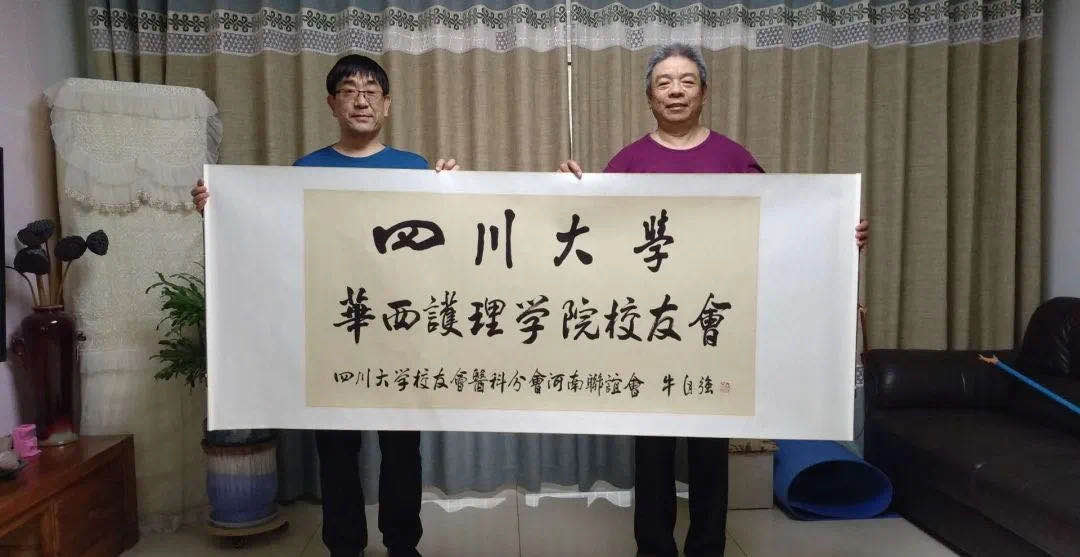 四川大學
華西護理学院校友會
四川大学校友會醫科分會河南聯誼會 牛自強